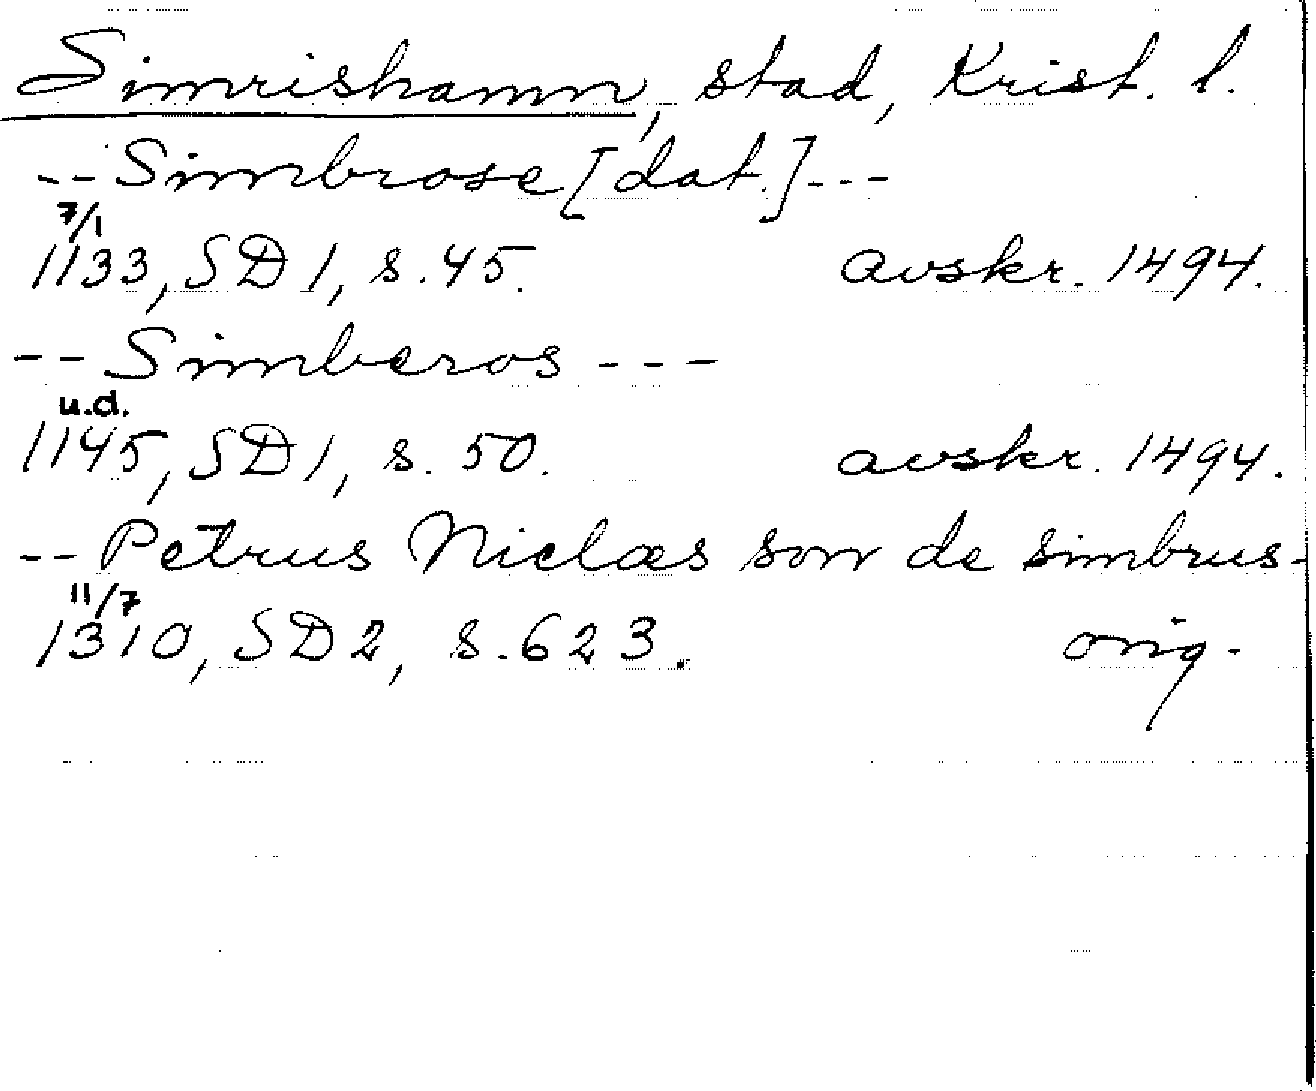 Simrishamn, stad, Krist. l.
-- Simbrose [dat.] ---
7/1
1133, SD 1, s. 45. avskr. 1494.
-- Simberos ---
u.d.
1145, SD 1, s. 50. avskr. 1494.
-- Petrus Niclæs son de simbrus-
11/7
1310, SD 2, s. 623. orig.